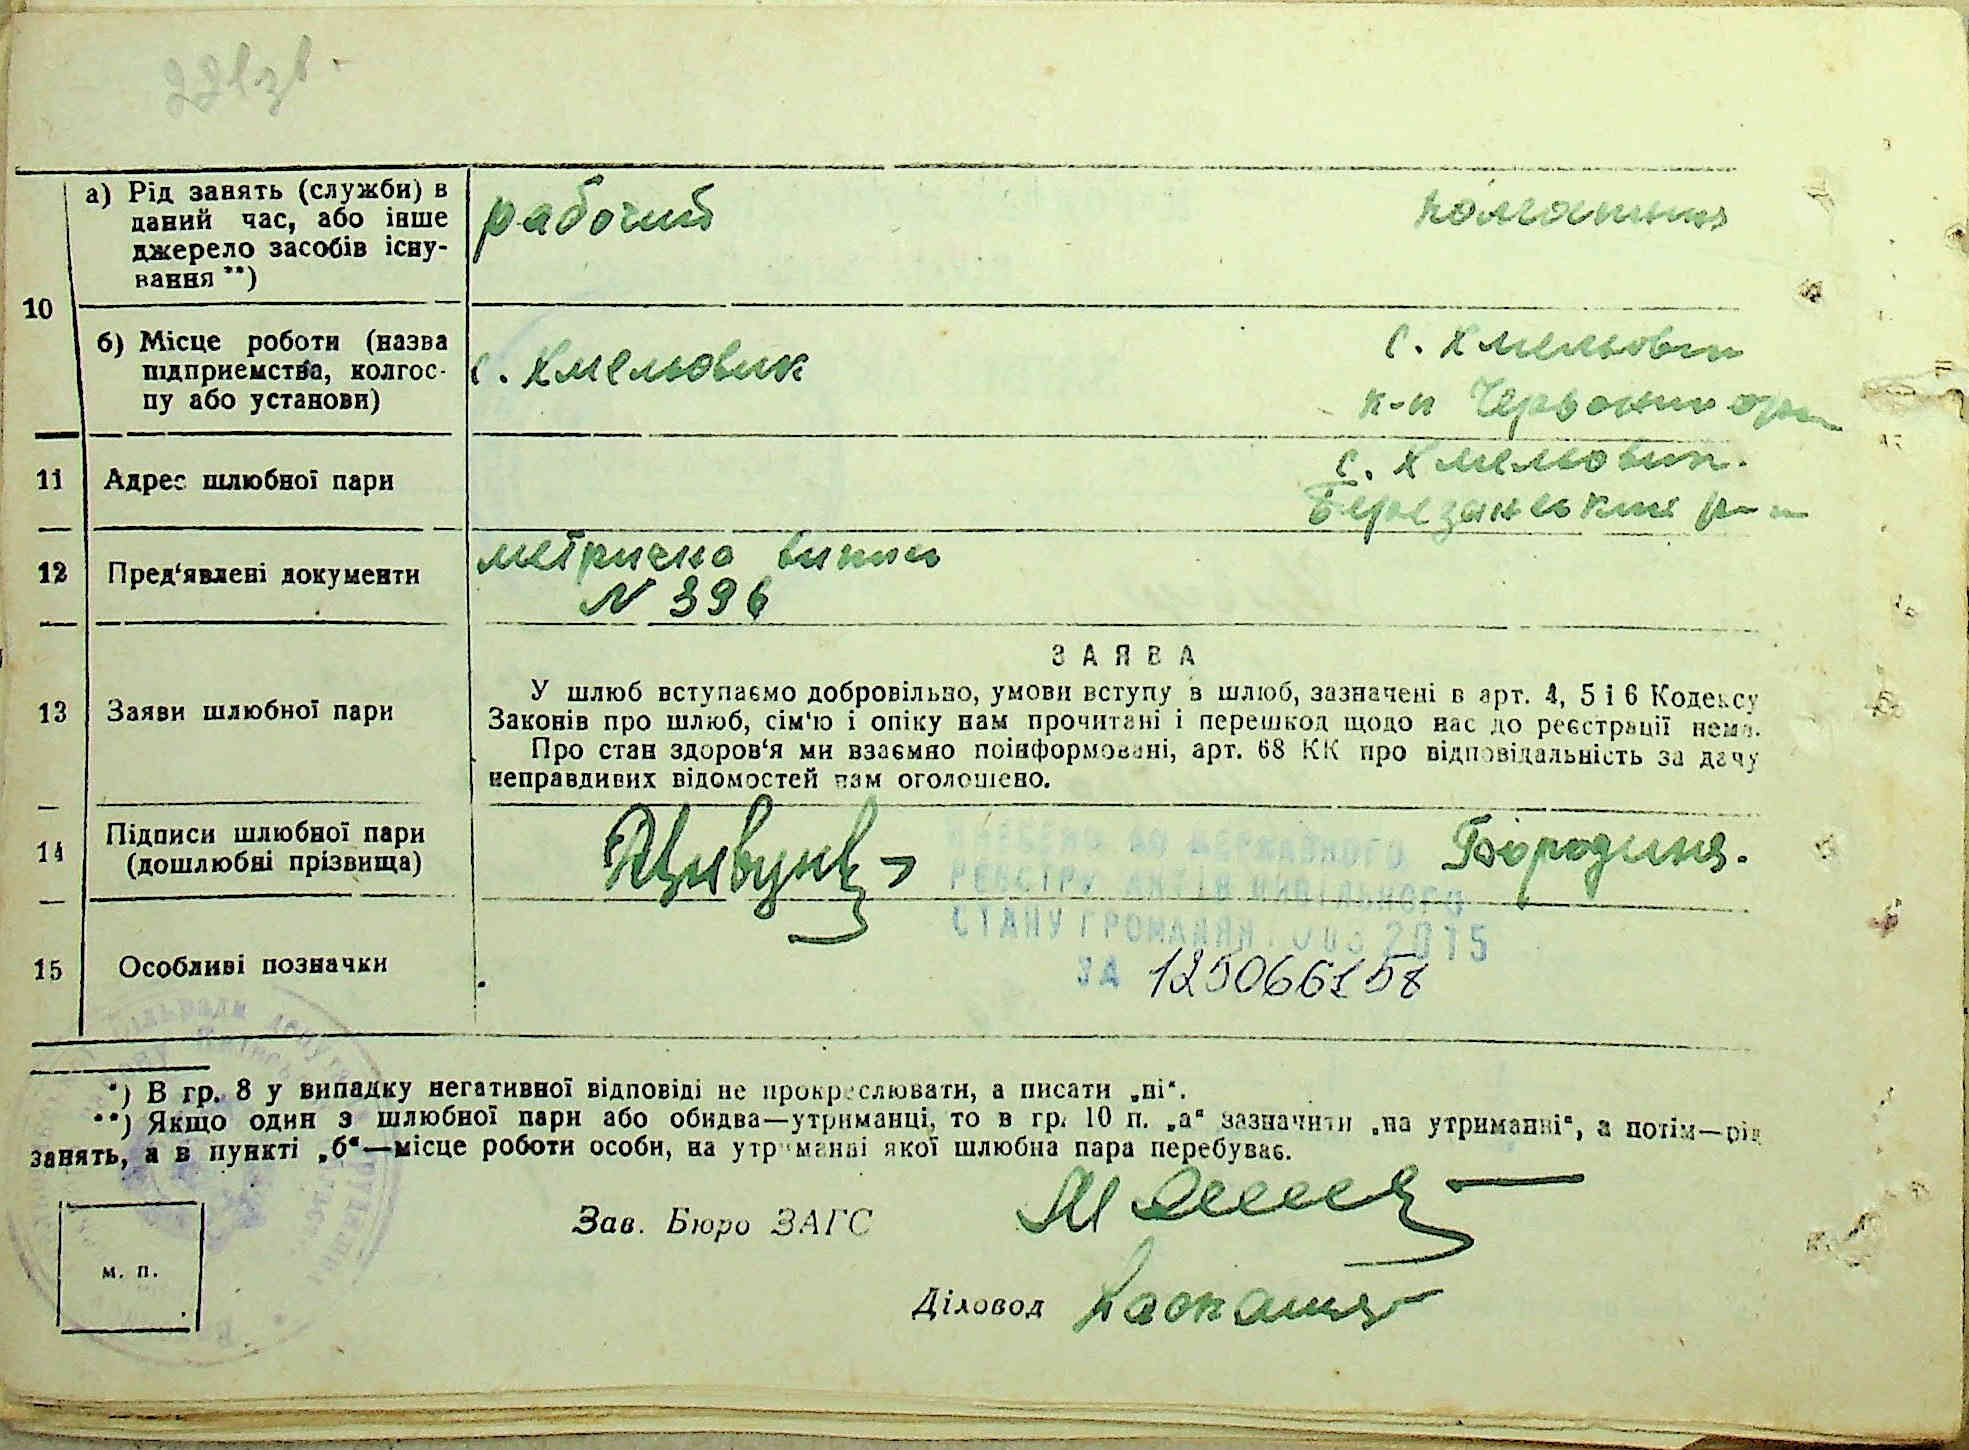 221 зв.
10
а) Рід занять (служби) в
даний час, або інше
джерело засобів існу-
вання **)
рабочий
колгоспниця
б) Місце роботи (назва
підприємства, колгос-
пу або установи)
с. Хмельовик
с. Хмельовик
к-п Червоний
11 Адрес шлюбної пари
с. Хмельовик.
Березанський р-н
12 Пред'явлені документи
метрична виписка
N 396
13 Заяви шлюбної пари
ЗАЯВА
У шлюб вступаємо добровільно, умови вступу в шлюб, зазначені в арт. 4, 5 і 6 Кодексу
Законів про шлюб, сім'ю і опіку нам прочитані і перешкод щодо нас до реєстрації нема.
Про стан здоров'я ми взаємно поінформовані, арт. 68 КК про відповідальність за дачу
неправдивих відомостей нам оголошено.
14 Підписи шлюбної пари
(дошлюбні прізвища)
Бородиня.
ВНЕСЕНО ДО ДЕРЖАВНОГО
РЕЄСТРУ АКТІВ ЦИВІЛЬНОГО
СТАНУ ГРОМАДЯН 2015
ЗА
15 Особливі позначки
*) В гр. 8 у випадку негативної відповіді не прокреслювати, а писати „ні“.
**) Якщо один з шлюбної пари або обидва—утриманці, то в гр. 10 п. „а“ зазначити „на утриманні“, а потім—рід
занять, а в пункті „б“—місце роботи особи, на утриманні якої шлюбна пара перебуває.
Зав. Бюро ЗАГС
м. п.
Діловод